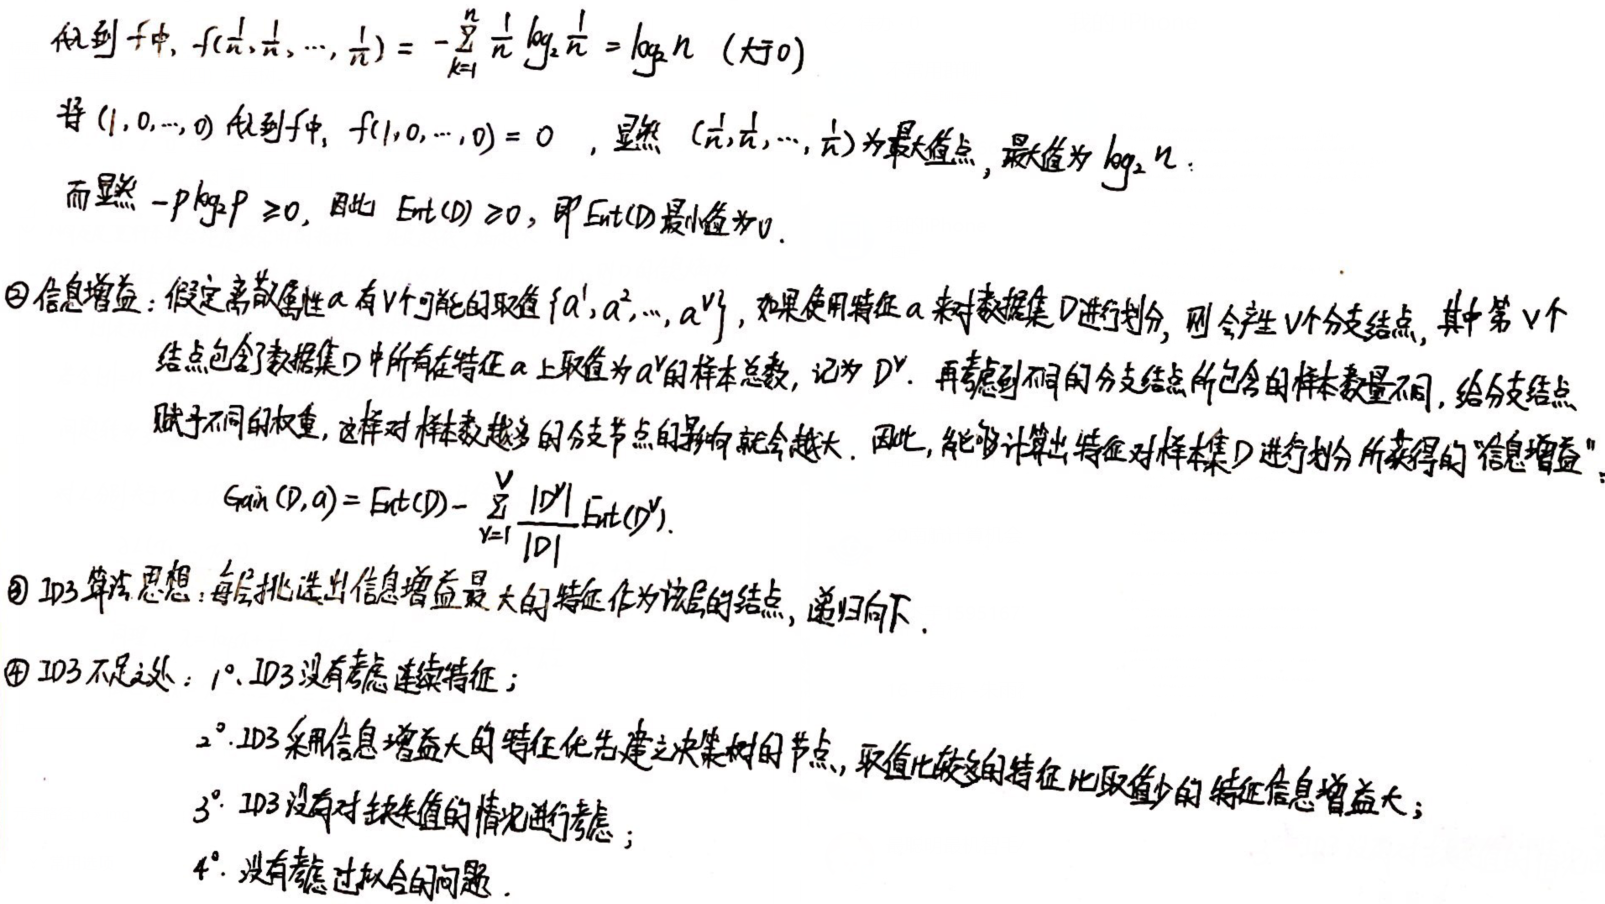 代入到f中, f(1/n, 1/n, ..., 1/n) = -∑_{k=1}^{n} 1/n log₂ 1/n = log₂ n (大于0)
将 (1, 0, ..., 0) 代入到f中, f(1, 0, ..., 0) = 0 , 显然 (1/n, 1/n, ..., 1/n) 为最大值点, 最大值为 log₂ n;
而显然 -p log₂ p ≥ 0, 因此 Ent(D) ≥ 0, 即 Ent(D) 最小值为 0.
② 信息增益: 假定离散属性 a 有 V 个可能的取值 {a¹, a², ..., a^V}, 如果使用特征 a 来对数据集 D 进行划分, 则会产生 V 个分支结点, 其中第 v 个
结点包含了数据集 D 中所有在特征 a 上取值为 a^v 的样本总数, 记为 D^v. 再考虑到不同的分支结点所包含的样本数量不同, 给分支结点
赋予不同的权重, 这样对样本数越多的分支节点的影响就会越大. 因此, 能够计算出特征对样本集 D 进行划分所获得的"信息增益":
Gain(D, a) = Ent(D) - ∑_{v=1}^{V} |D^v|/|D| Ent(D^v).
③ ID3算法思想: 每层挑选出信息增益最大的特征作为该层的结点, 递归向下.
④ ID3不足之处: 1°. ID3没有考虑连续特征;
2°. ID3采用信息增益大的特征优先建立决策树的节点, 取值比较多的特征比取值少的特征信息增益大;
3°. ID3没有对缺失值的情况进行考虑;
4°. 没有考虑过拟合的问题.